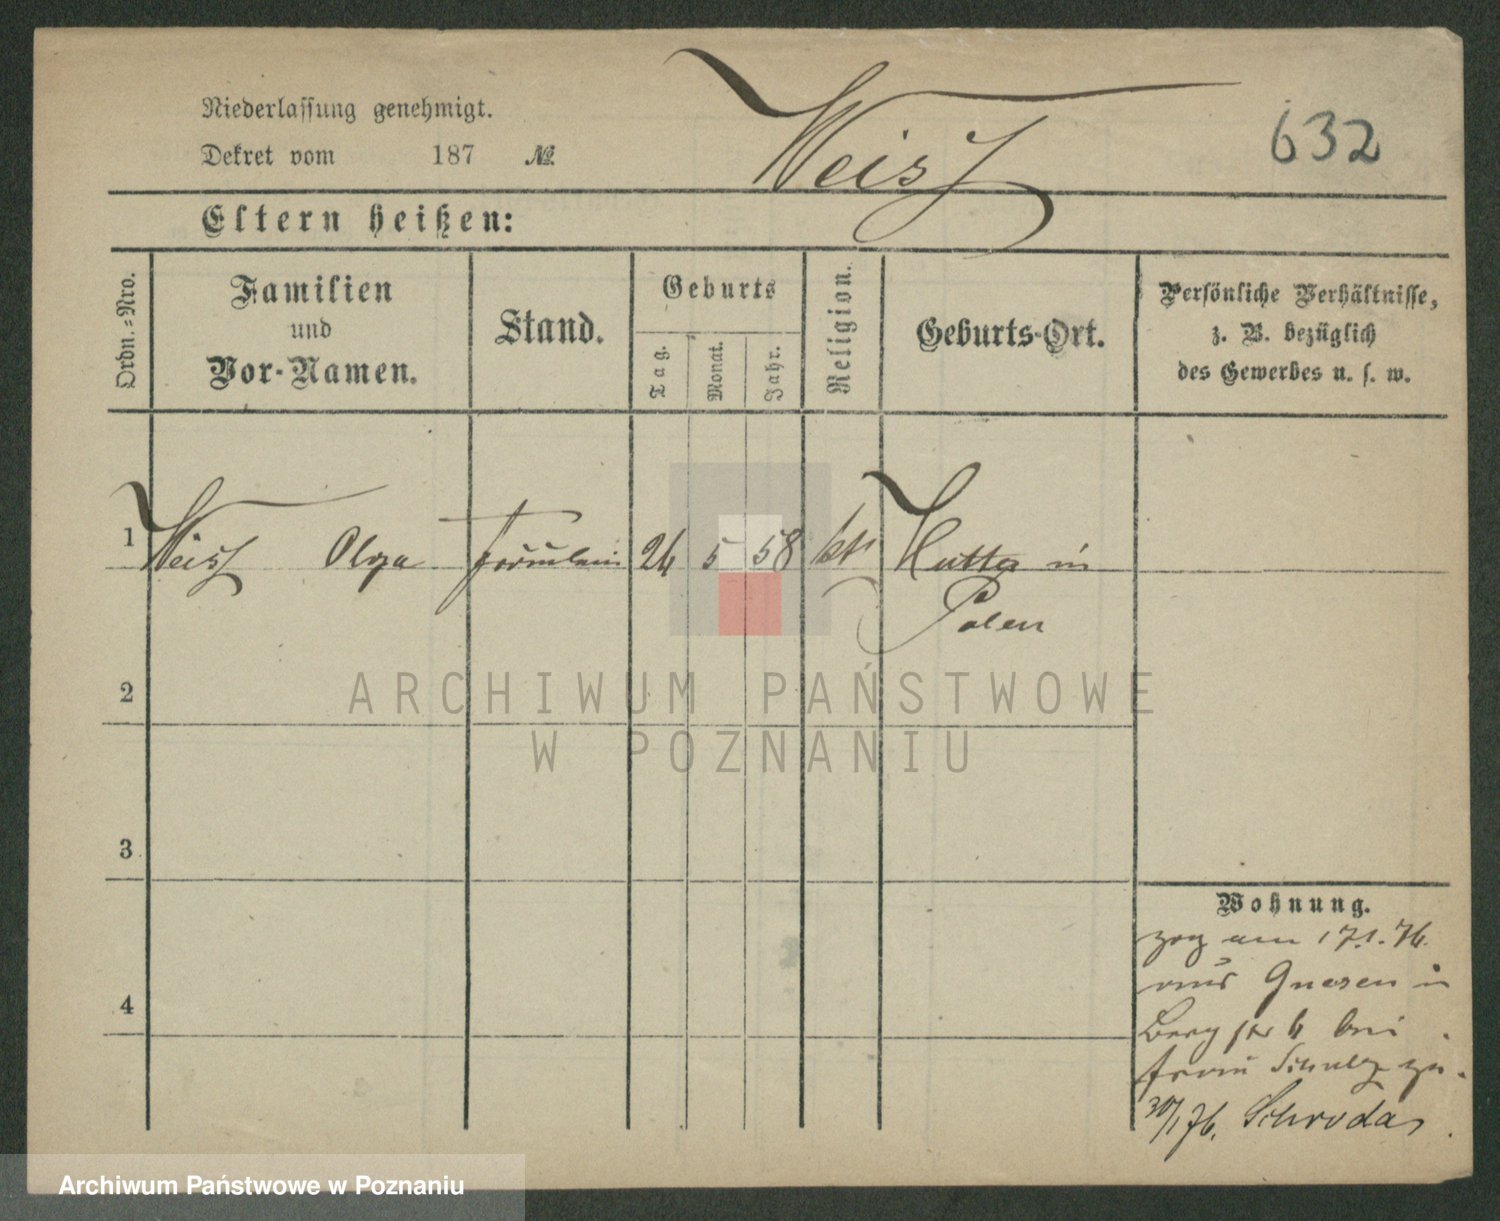 Niederlassung genehmigt.
Dekret vom 187 №
Weisz
632
Eltern heißen:
Ordn.=Nro.
Familien
und
Vor-Namen.
Stand.
Geburts
Tag.
Monat.
Jahr.
Religion.
Geburts-Ort.
Persönliche Verhältnisse,
z. B. bezüglich
des Gewerbes u. s. w.
1 Weisz Olga Fräulein 24 5 58 kth Hutta in
Polen
2
3
4
Wohnung.
zog am 17.1.76.
aus Gnesen in
Berg str 4 bei
Frau Schulz zu.
30/1 76. Schroda
ARCHIWUM PAŃSTWOWE
W POZNANIU
Archiwum Państwowe w Poznaniu